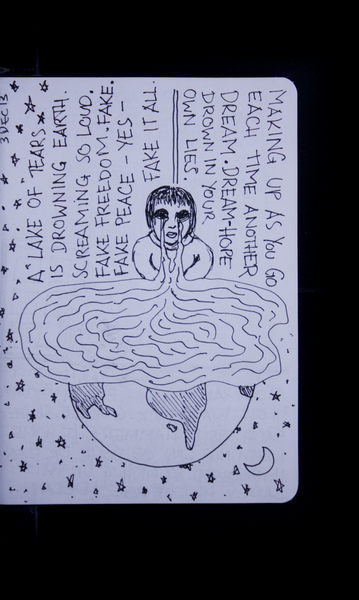 3 DEC 13
A LAKE OF TEARS
IS DROWNING EARTH.
SCREAMING SO LOUD.
FAKE FREEDOM. FAKE.
FAKE PEACE - YES -
FAKE IT ALL.
MAKING UP AS YOU GO
EACH TIME ANOTHER
DREAM. DREAM-HOPE
DROWN IN YOUR
OWN LIES.